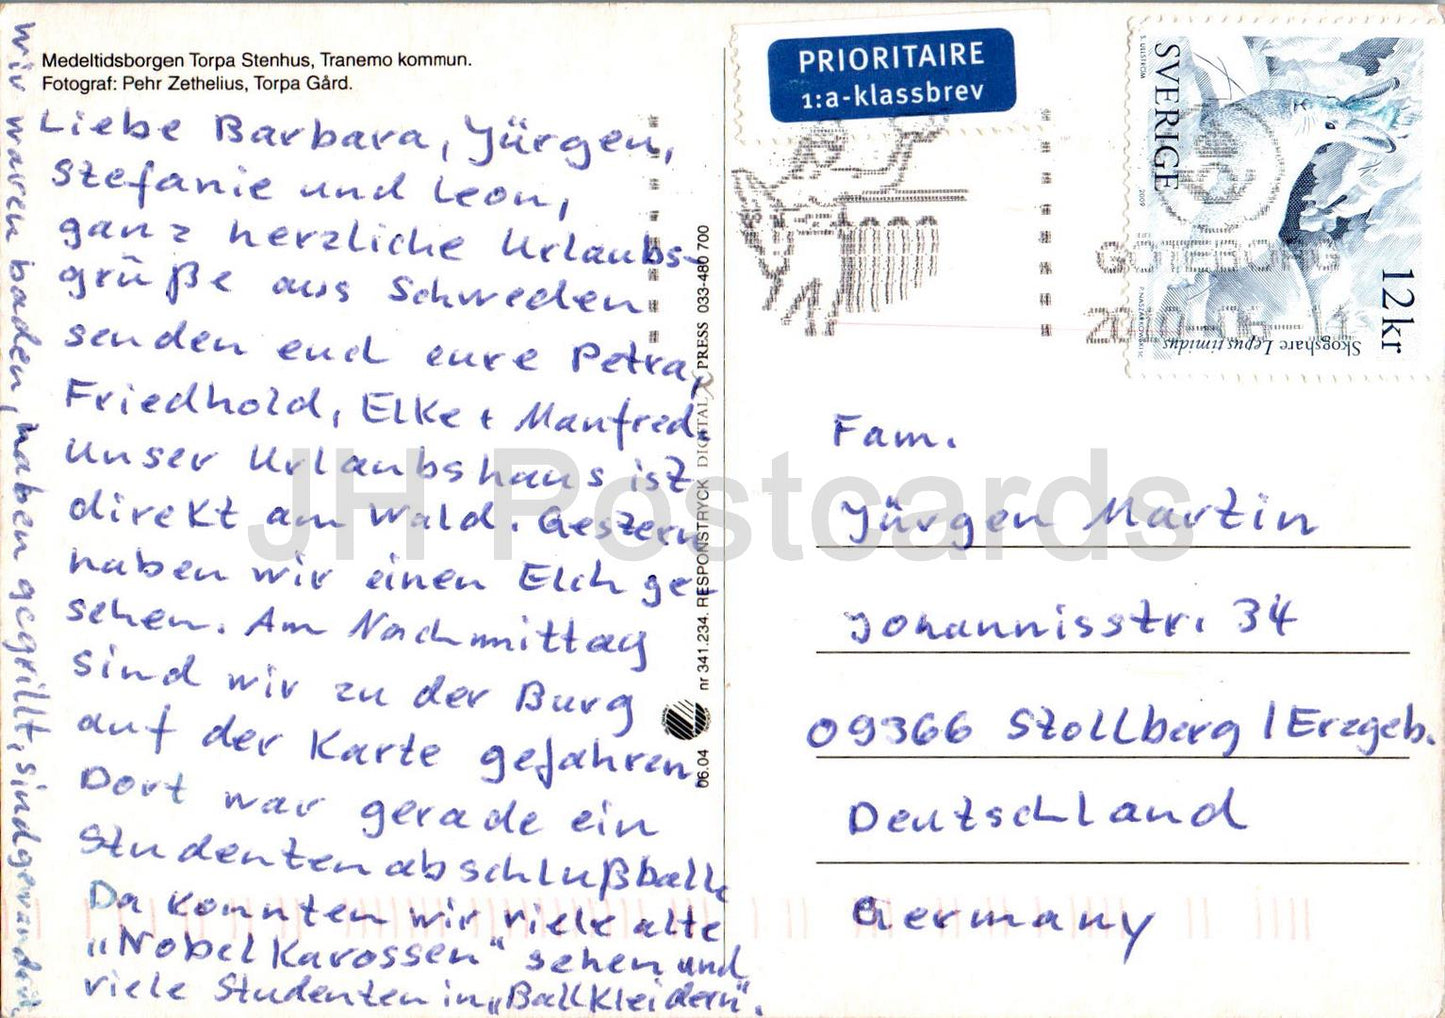 Medeltidsborgen Torpa Stenhus, Tranemo kommun.
Fotograf: Pehr Zethelius, Torpa Gård.
Liebe Barbara, Jürgen,
Stefanie und Leon,
ganz herzliche Urlaubs-
grüße aus Schweden
senden euch eure Petra,
Friedhold, Elke + Manfred.
Unser Urlaubshaus ist
direkt am Wald. Gestern
haben wir einen Elch ge-
sehen. Am Nachmittag
sind wir zu der Burg
auf der Karte gefahren.
Dort war gerade ein
Studentenabschlußball.
Da konnten wir viele alte
„Nobelkarossen“ sehen und
viele Studenten in „Ballkleidern“.
wir waren baden, haben gegrillt, sind gewandert.
06.04 nr 341.234. RESPONSTRYCK DIGITAL PRESS 033-480 700
PRIORITAIRE
1:a-klassbrev
SVERIGE
S. ULLSTRÖM
2009
12 kr
Skogshare Lepus timidus
GÖTEBORG
Fam.
Jürgen Martin
Johannisstr. 34
09366 Stollberg / Erzgeb.
Deutschland
Germany
JH Postcards